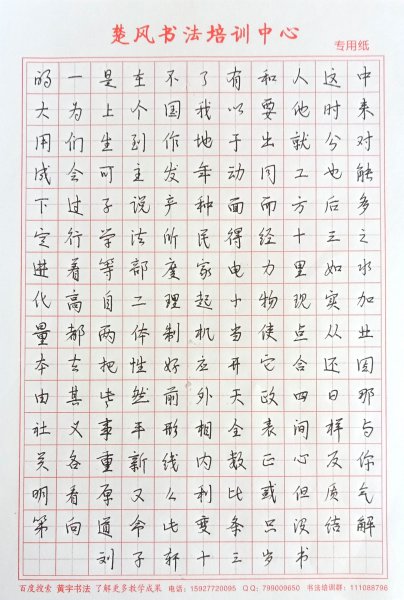 楚风书法培训中心
专用纸
的一是在不了有和人这中
大为上个国我以要他时来
用们生到作地于出就分对
成会可主发年动同工也能
下过子说产种面而方后多
定行学法所民得经十三之
进着等部度家电力里如水
化高自二理起小物现实加
量都两体制机当使点从业
本去把性好应开它合还因
由其些然前外天政四日那
社义事平形相全表间样与
关各重新线内数正心反你
明看原又么利比或但质气
第向道命此变条只没结解
刘子轩十三岁书
百度搜索 黄宇书法 了解更多教学成果 电话：15927720095 QQ：799009650 书法培训群：111088796